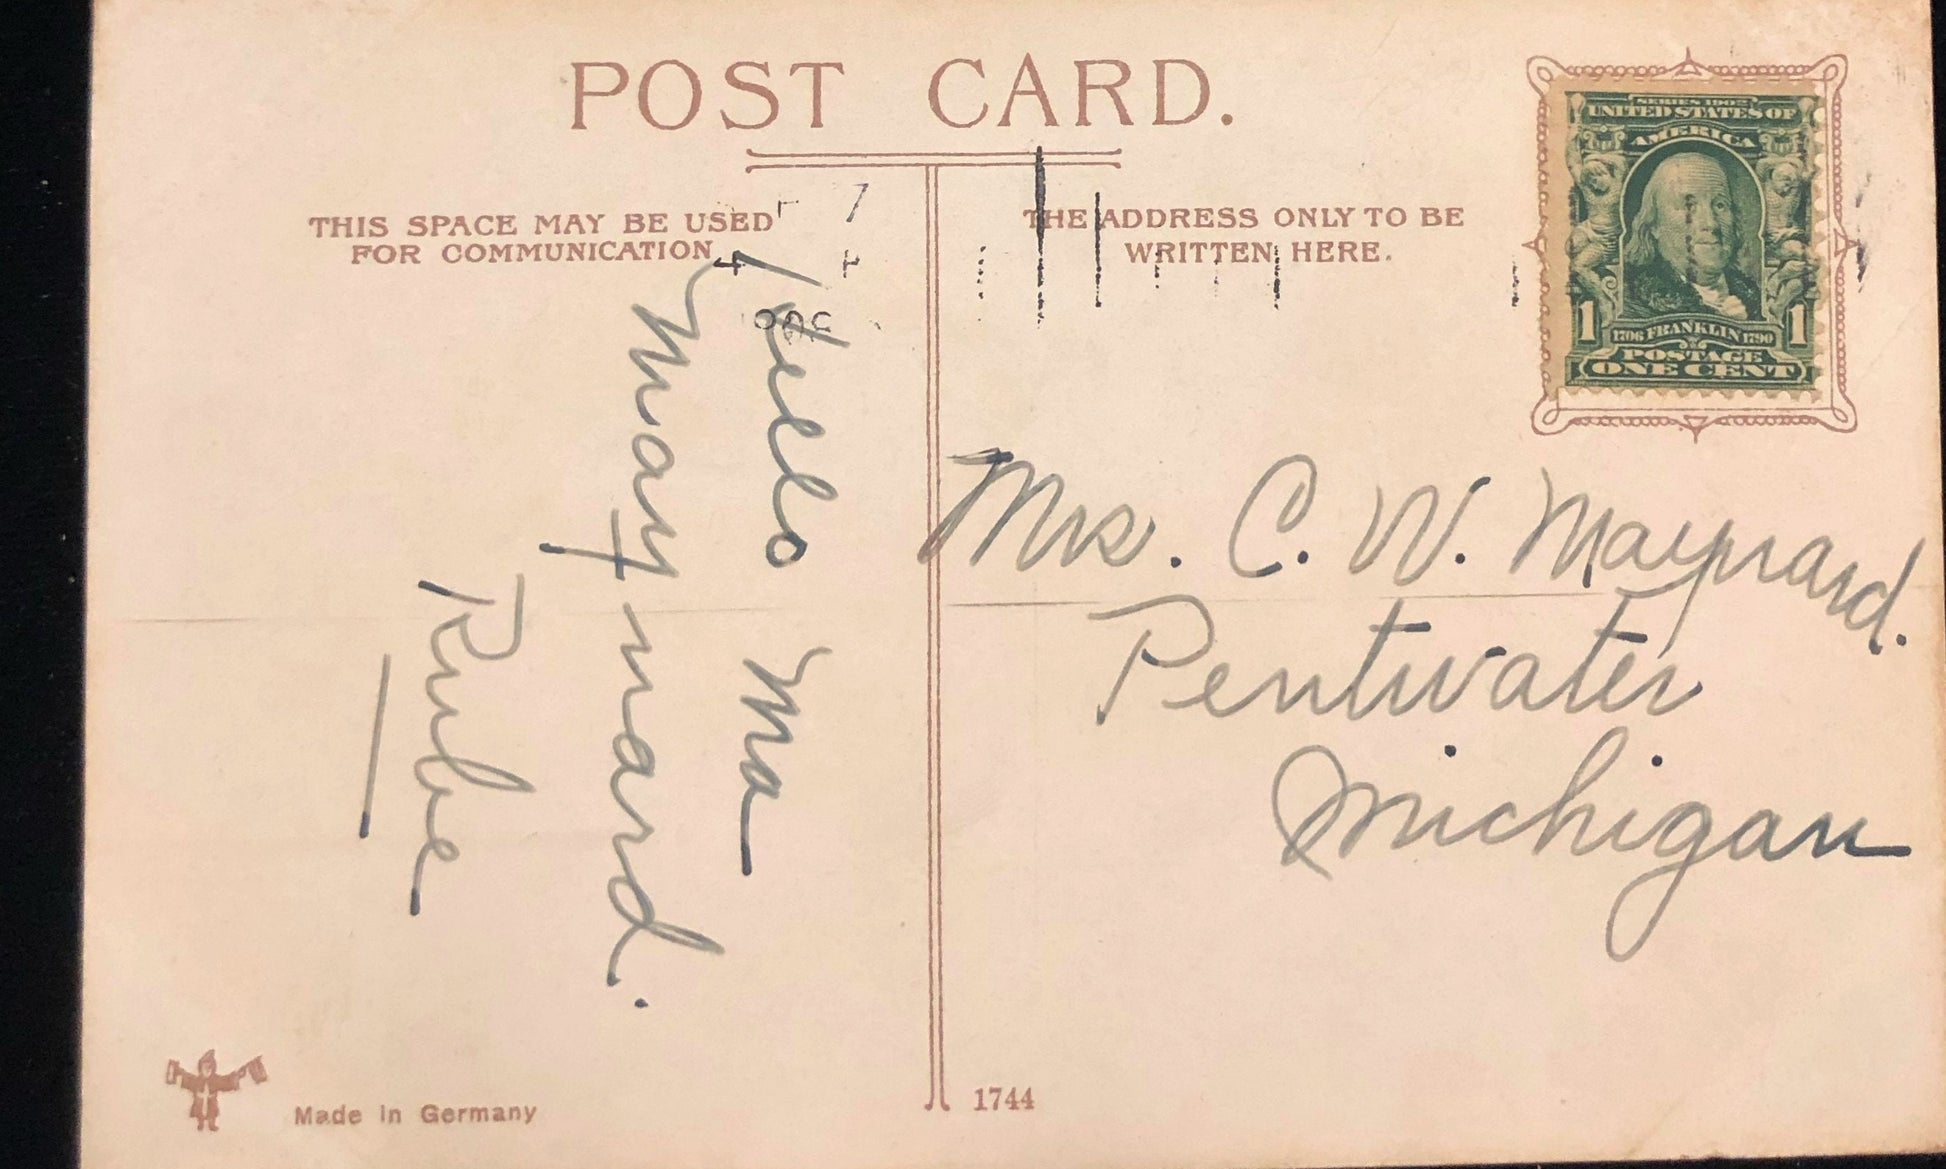 POST CARD.
THIS SPACE MAY BE USED
FOR COMMUNICATION
THE ADDRESS ONLY TO BE
WRITTEN HERE.
SERIES 1902
UNITED STATES OF
AMERICA
1 1706 FRANKLIN 1790 1
POSTAGE
ONE CENT
Hello Ma
Maynard.
Rube
Mrs. C. W. Maynard.
Pentwater
Michigan
Made in Germany
1744